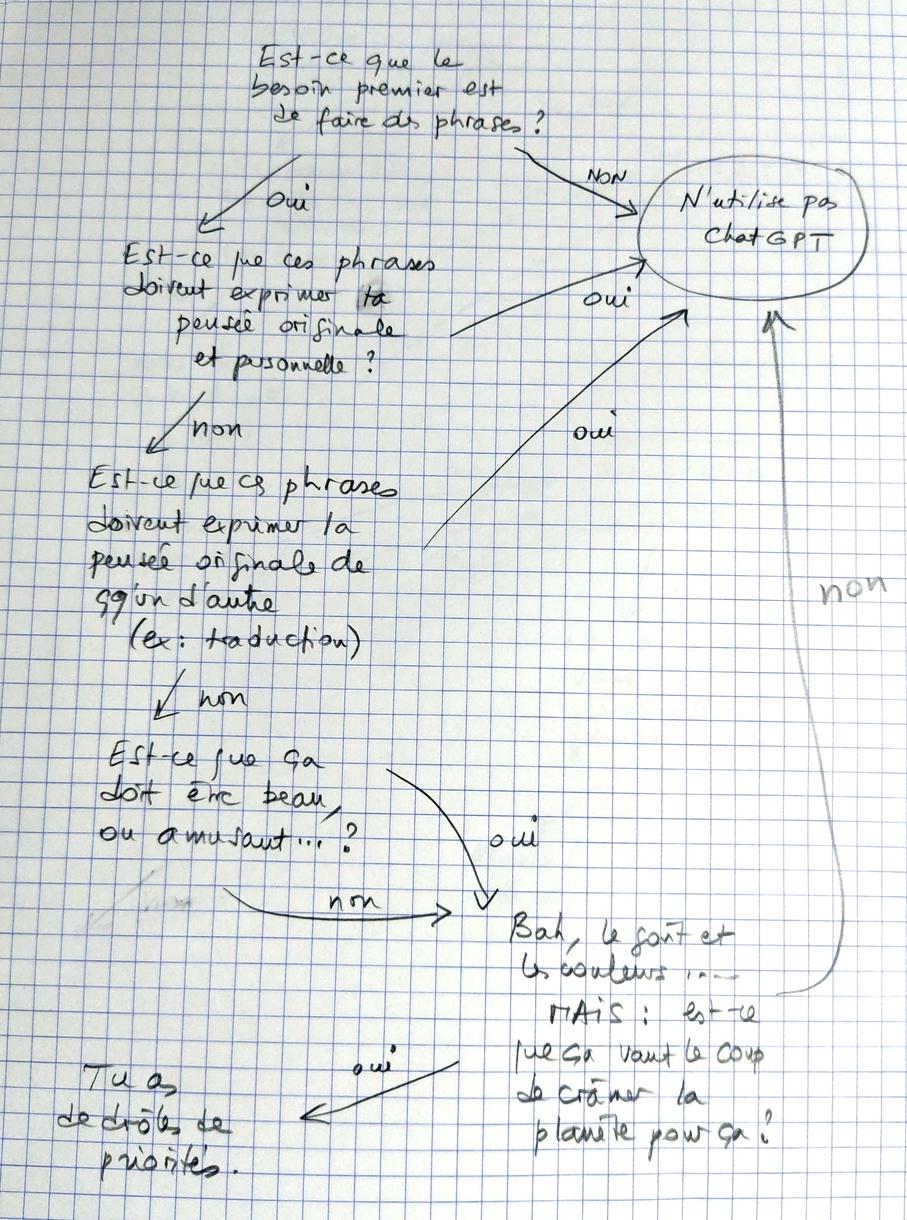 Est-ce que le
besoin premier est
de faire des phrases ?
NON
oui
N'utilise pas
ChatGPT
Est-ce que ces phrases
doivent exprimer ta
pensée originale
et personnelle ?
oui
non
oui
Est-ce que ces phrases
doivent exprimer la
pensée originale de
qq'un d'autre
(ex : traduction)
non
non
Est-ce que ça
doit être beau,
ou amusant ... ?
oui
non
Bah, le goût et
les couleurs ....
MAIS : est-ce
que ça vaut le coup
de crâmer la
planète pour ça ?
oui
Tu as
de drôles de
priorités.